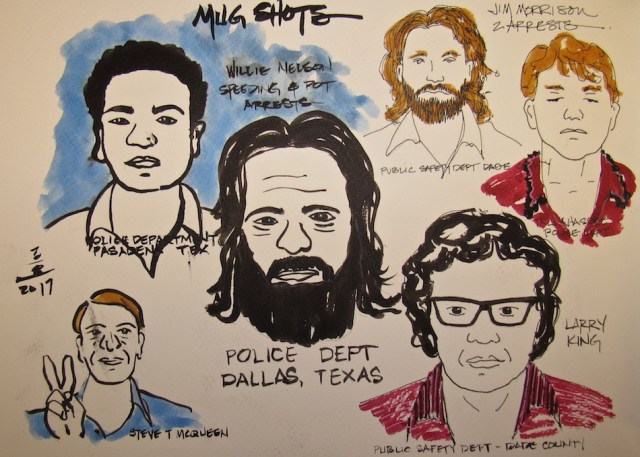 MUG SHOTS
WILLIE NELSON
SPEEDING & POT
ARRESTS
JIM MORRISON
2 ARRESTS
PUBLIC SAFETY DEPT DADE
POLICE
POLICE DEPARTMENT
PASADENA TEX
2017
POLICE DEPT
DALLAS, TEXAS
LARRY
KING
STEVE T MCQUEEN
PUBLIC SAFETY DEPT - DADE COUNTY